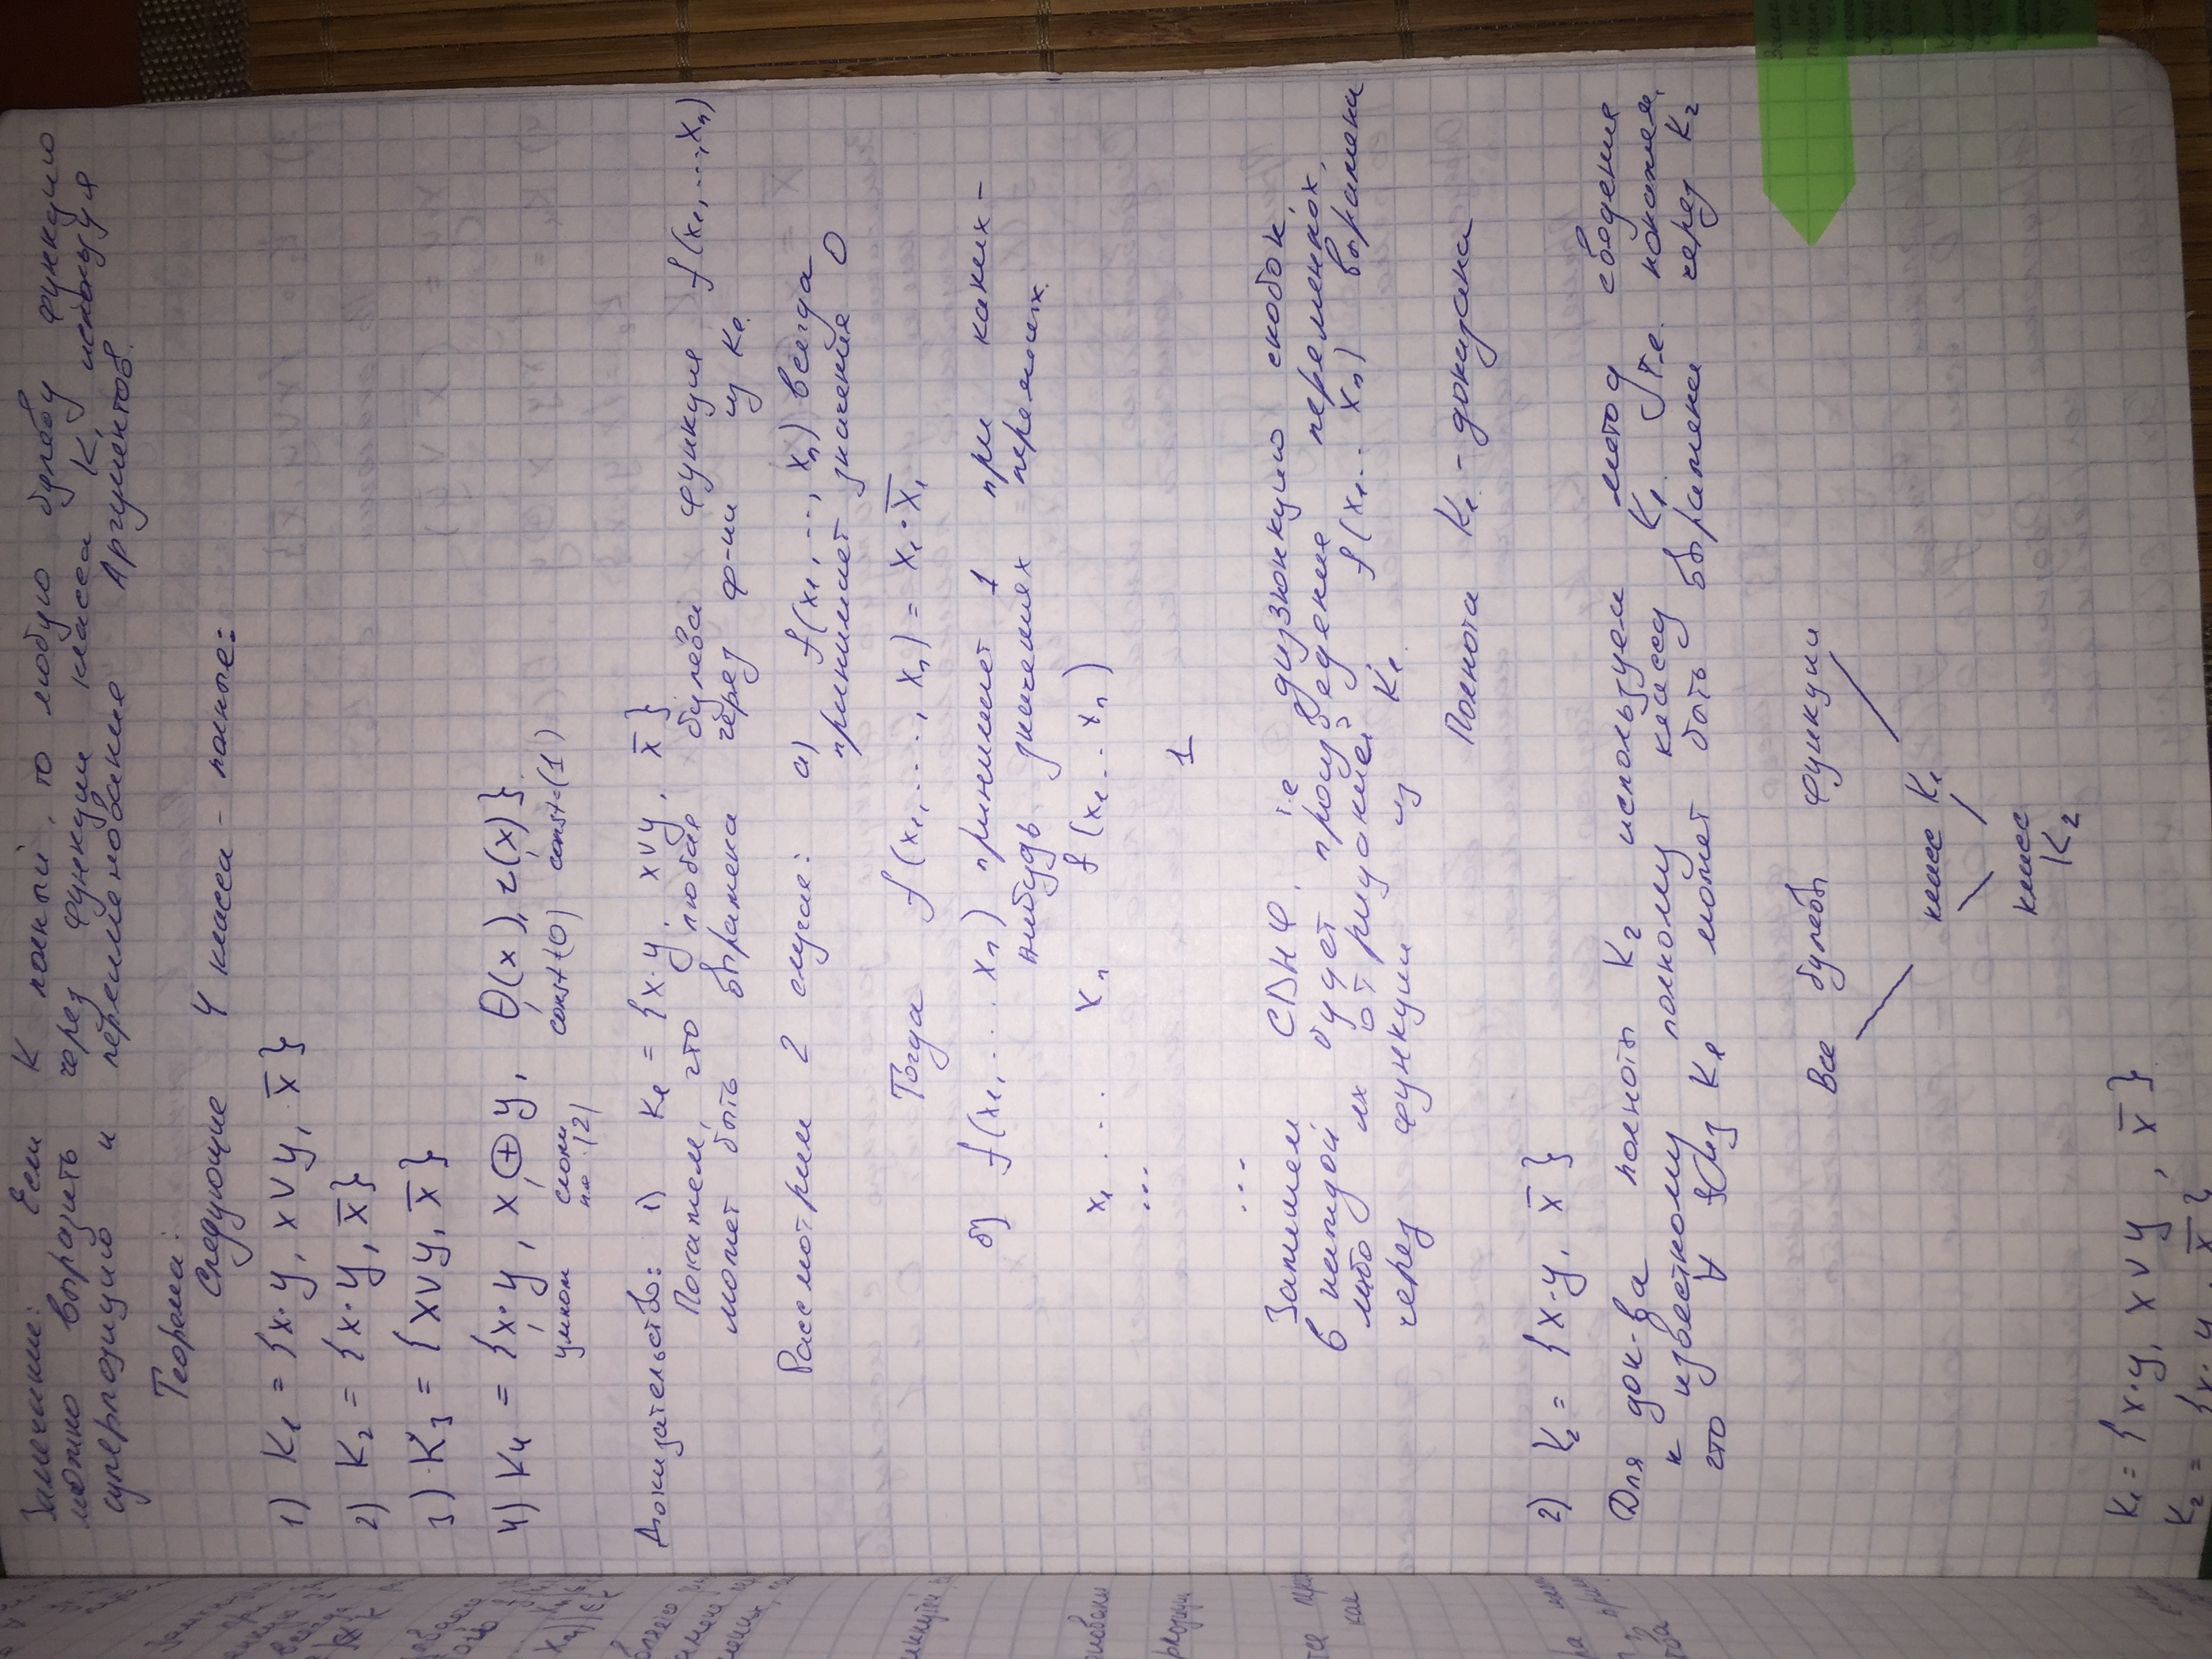 Замечание: Если K полный, то любую булеву функцию
можно выразить через функции класса K, используя
суперпозицию и переименование Аргументов.
Теорема:
Следующие 4 класса - полные:
1) K₁ = {x·y, x∨y, x̄}
2) K₂ = {x·y, x̄}
3) K₃ = {x∨y, x̄}
4) K₄ = {x·y, x⊕y, θ(x), r(x)}.
умнож слож const=(0) const=(1)
по (2)
Доказательство: 1) K₁ = {x·y, x∨y, x̄}
Покажем, что любая булева функция f(x₁,...,xₙ)
может быть выражена через ф-ии из K₁.
Рассмотрим 2 случая: а) f(x₁,..,xₙ) всегда
принимает значение 0
Тогда f(x₁,...,xₙ) = x₁·x̄₁
б) f(x₁,...xₙ) принимает 1 при каких-
нибудь значениях перемених.
x₁ ... xₙ f(x₁..xₙ)
...
1
...
Запишем СДНФ, т.е дизъюнкцию скобок,
в каждой будет произведение переменных,
либо их отрицаний. f(x₁..xₙ) выражена
через функции из K₁.
Полнота K₁ - доказана
2) K₂ = {x·y, x̄}
Для док-ва полноты K₂ используем метод сведения
к известному полному классу K₁. Т.е. покажем,
что ∀ f из K₁ может быть выражена через K₂
Все булевы функции
класс K₁
класс
K₂
K₁ = {x·y, x∨y, x̄}
K₂ = {x·y, x̄}